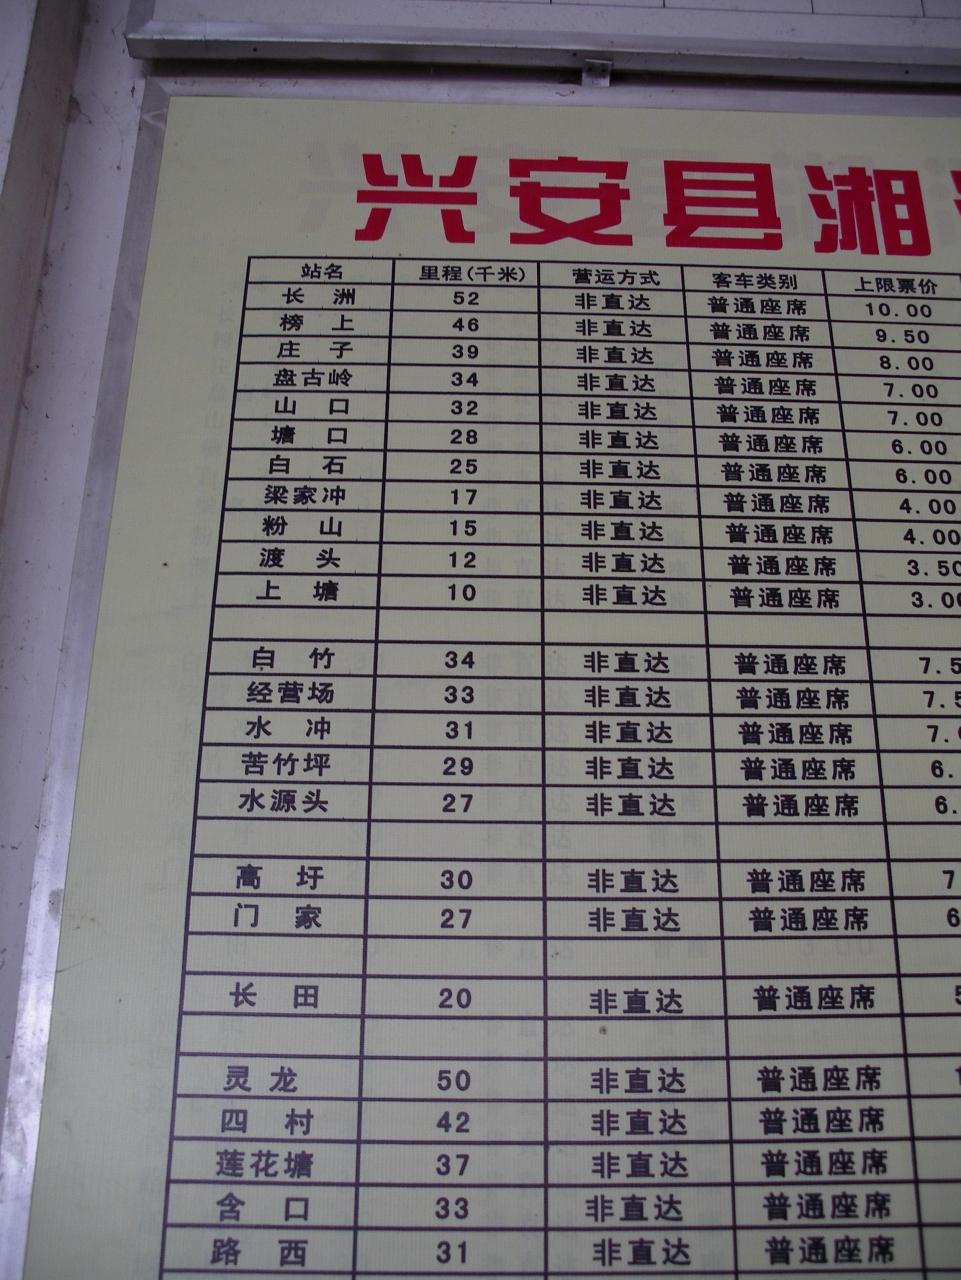 兴安县湘
站名 里程(千米) 营运方式 客车类别 上限票价
长洲 52 非直达 普通座席 10.00
榜上 46 非直达 普通座席 9.50
庄子 39 非直达 普通座席 8.00
盘古岭 34 非直达 普通座席 7.00
山口 32 非直达 普通座席 7.00
塘口 28 非直达 普通座席 6.00
白石 25 非直达 普通座席 6.00
梁家冲 17 非直达 普通座席 4.00
粉山 15 非直达 普通座席 4.00
渡头 12 非直达 普通座席 3.50
上塘 10 非直达 普通座席 3.00
白竹 34 非直达 普通座席 7.5
经营场 33 非直达 普通座席 7.5
水冲 31 非直达 普通座席 7.
苦竹坪 29 非直达 普通座席 6.
水源头 27 非直达 普通座席 6.
高圩 30 非直达 普通座席 7
门家 27 非直达 普通座席 6
长田 20 非直达 普通座席 5
灵龙 50 非直达 普通座席 1
四村 42 非直达 普通座席
莲花塘 37 非直达 普通座席
含口 33 非直达 普通座席
路西 31 非直达 普通座席